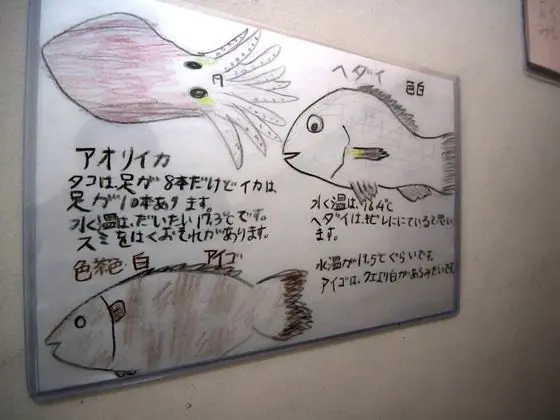 ヘダイ 色白
アオリイカ
タコは、足が8本だけどイカは、
足が10本あります。
水温は、だいたい17.3℃です。
スミをはくおそれがあります。
水温は、16.4℃
ヘダイは、キビレににていると思い
ます。
色茶色・白 アイゴ
水温が17.5℃ぐらいです。
アイゴは、クエより白があるみたいです。